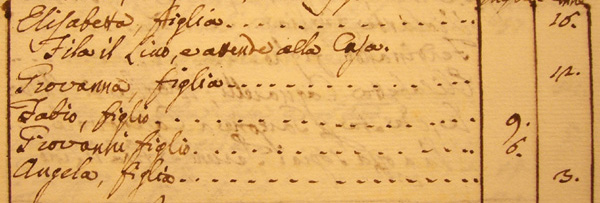 Elisabetta, figlia. . . . . . . . . . . . . . . . . 16.
Fila il Lino, e attende alla Casa.
Giovanna, figlia . . . . . . . . . . . . . . . . 12.
Fabio, figlio . . . . . . . . . . . . . . . . 9.
Giovanni figlio . . . . . . . . . . . . . . 6.
Angela, figlia . . . . . . . . . . . . . . . . . 3.